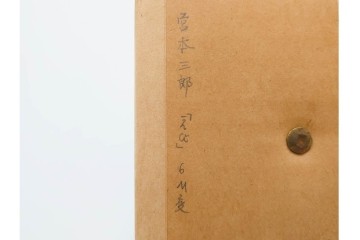 宮本三郎 「衣」 6M変